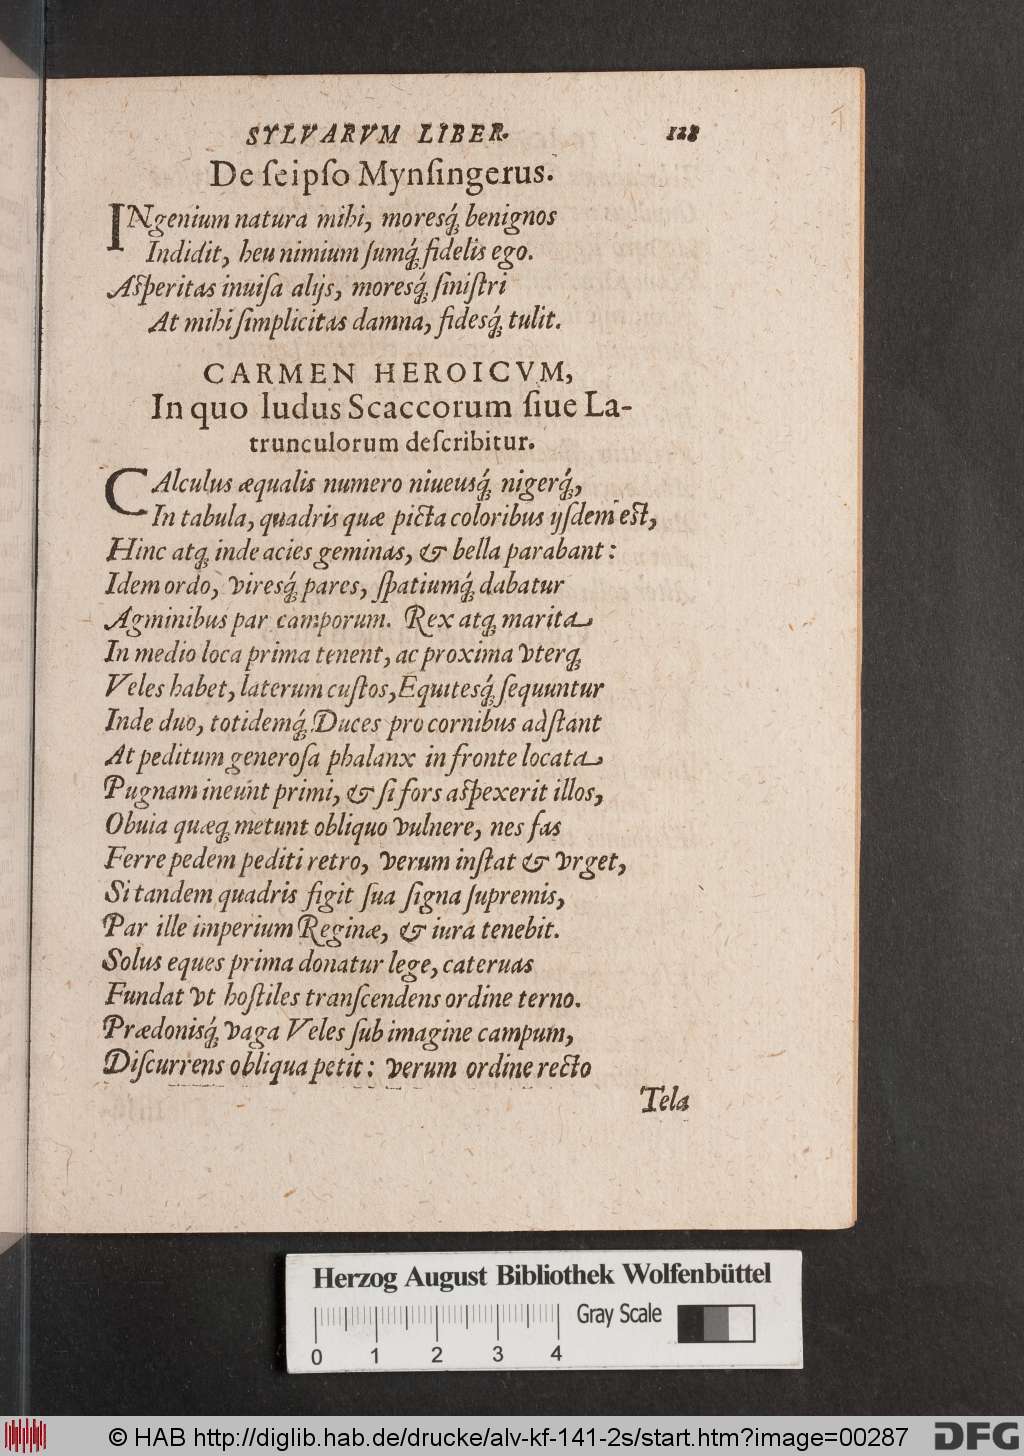 SYLVARVM LIBER. 128
De ſeipſo Mynſingerus.
INgenium natura mihi, moresq́; benignos
Indidit, heu nimium ſumq́; fidelis ego.
Aſperitas inuiſa alijs, moresq́; ſiniſtri
At mihi ſimplicitas damna, fidesq́; tulit.
CARMEN HEROICVM,
In quo ludus Scaccorum ſiue La-
trunculorum deſcribitur.
CAlculus æqualis numero niueusq́; nigerq́;,
In tabula, quadris quæ picta coloribus ijſdem eſt,
Hinc atq; inde acies geminas, & bella parabant:
Idem ordo, viresq́; pares, ſpatiumq́; dabatur
Agminibus par camporum. Rex atq; marita
In medio loca prima tenent, ac proxima vterq;
Veles habet, laterum cuſtos, Equitesq́; ſequuntur
Inde duo, totidemq́; Duces pro cornibus adſtant
At peditum generoſa phalanx in fronte locata
Pugnam ineunt primi, & ſi fors aſpexerit illos,
Obuia quæq; metunt obliquo vulnere, nes fas
Ferre pedem pediti retro, verum inſtat & vrget,
Si tandem quadris figit ſua ſigna ſupremis,
Par ille imperium Reginæ, & iura tenebit.
Solus eques prima donatur lege, cateruas
Fundat vt hoſtiles tranſcendens ordine terno.
Prædonisq́; vaga Veles ſub imagine campum,
Diſcurrens obliqua petit: verum ordine recto
Tela
Herzog August Bibliothek Wolfenbüttel
Gray Scale
0 1 2 3 4
© HAB http://diglib.hab.de/drucke/alv-kf-141-2s/start.htm?image=00287
DFG